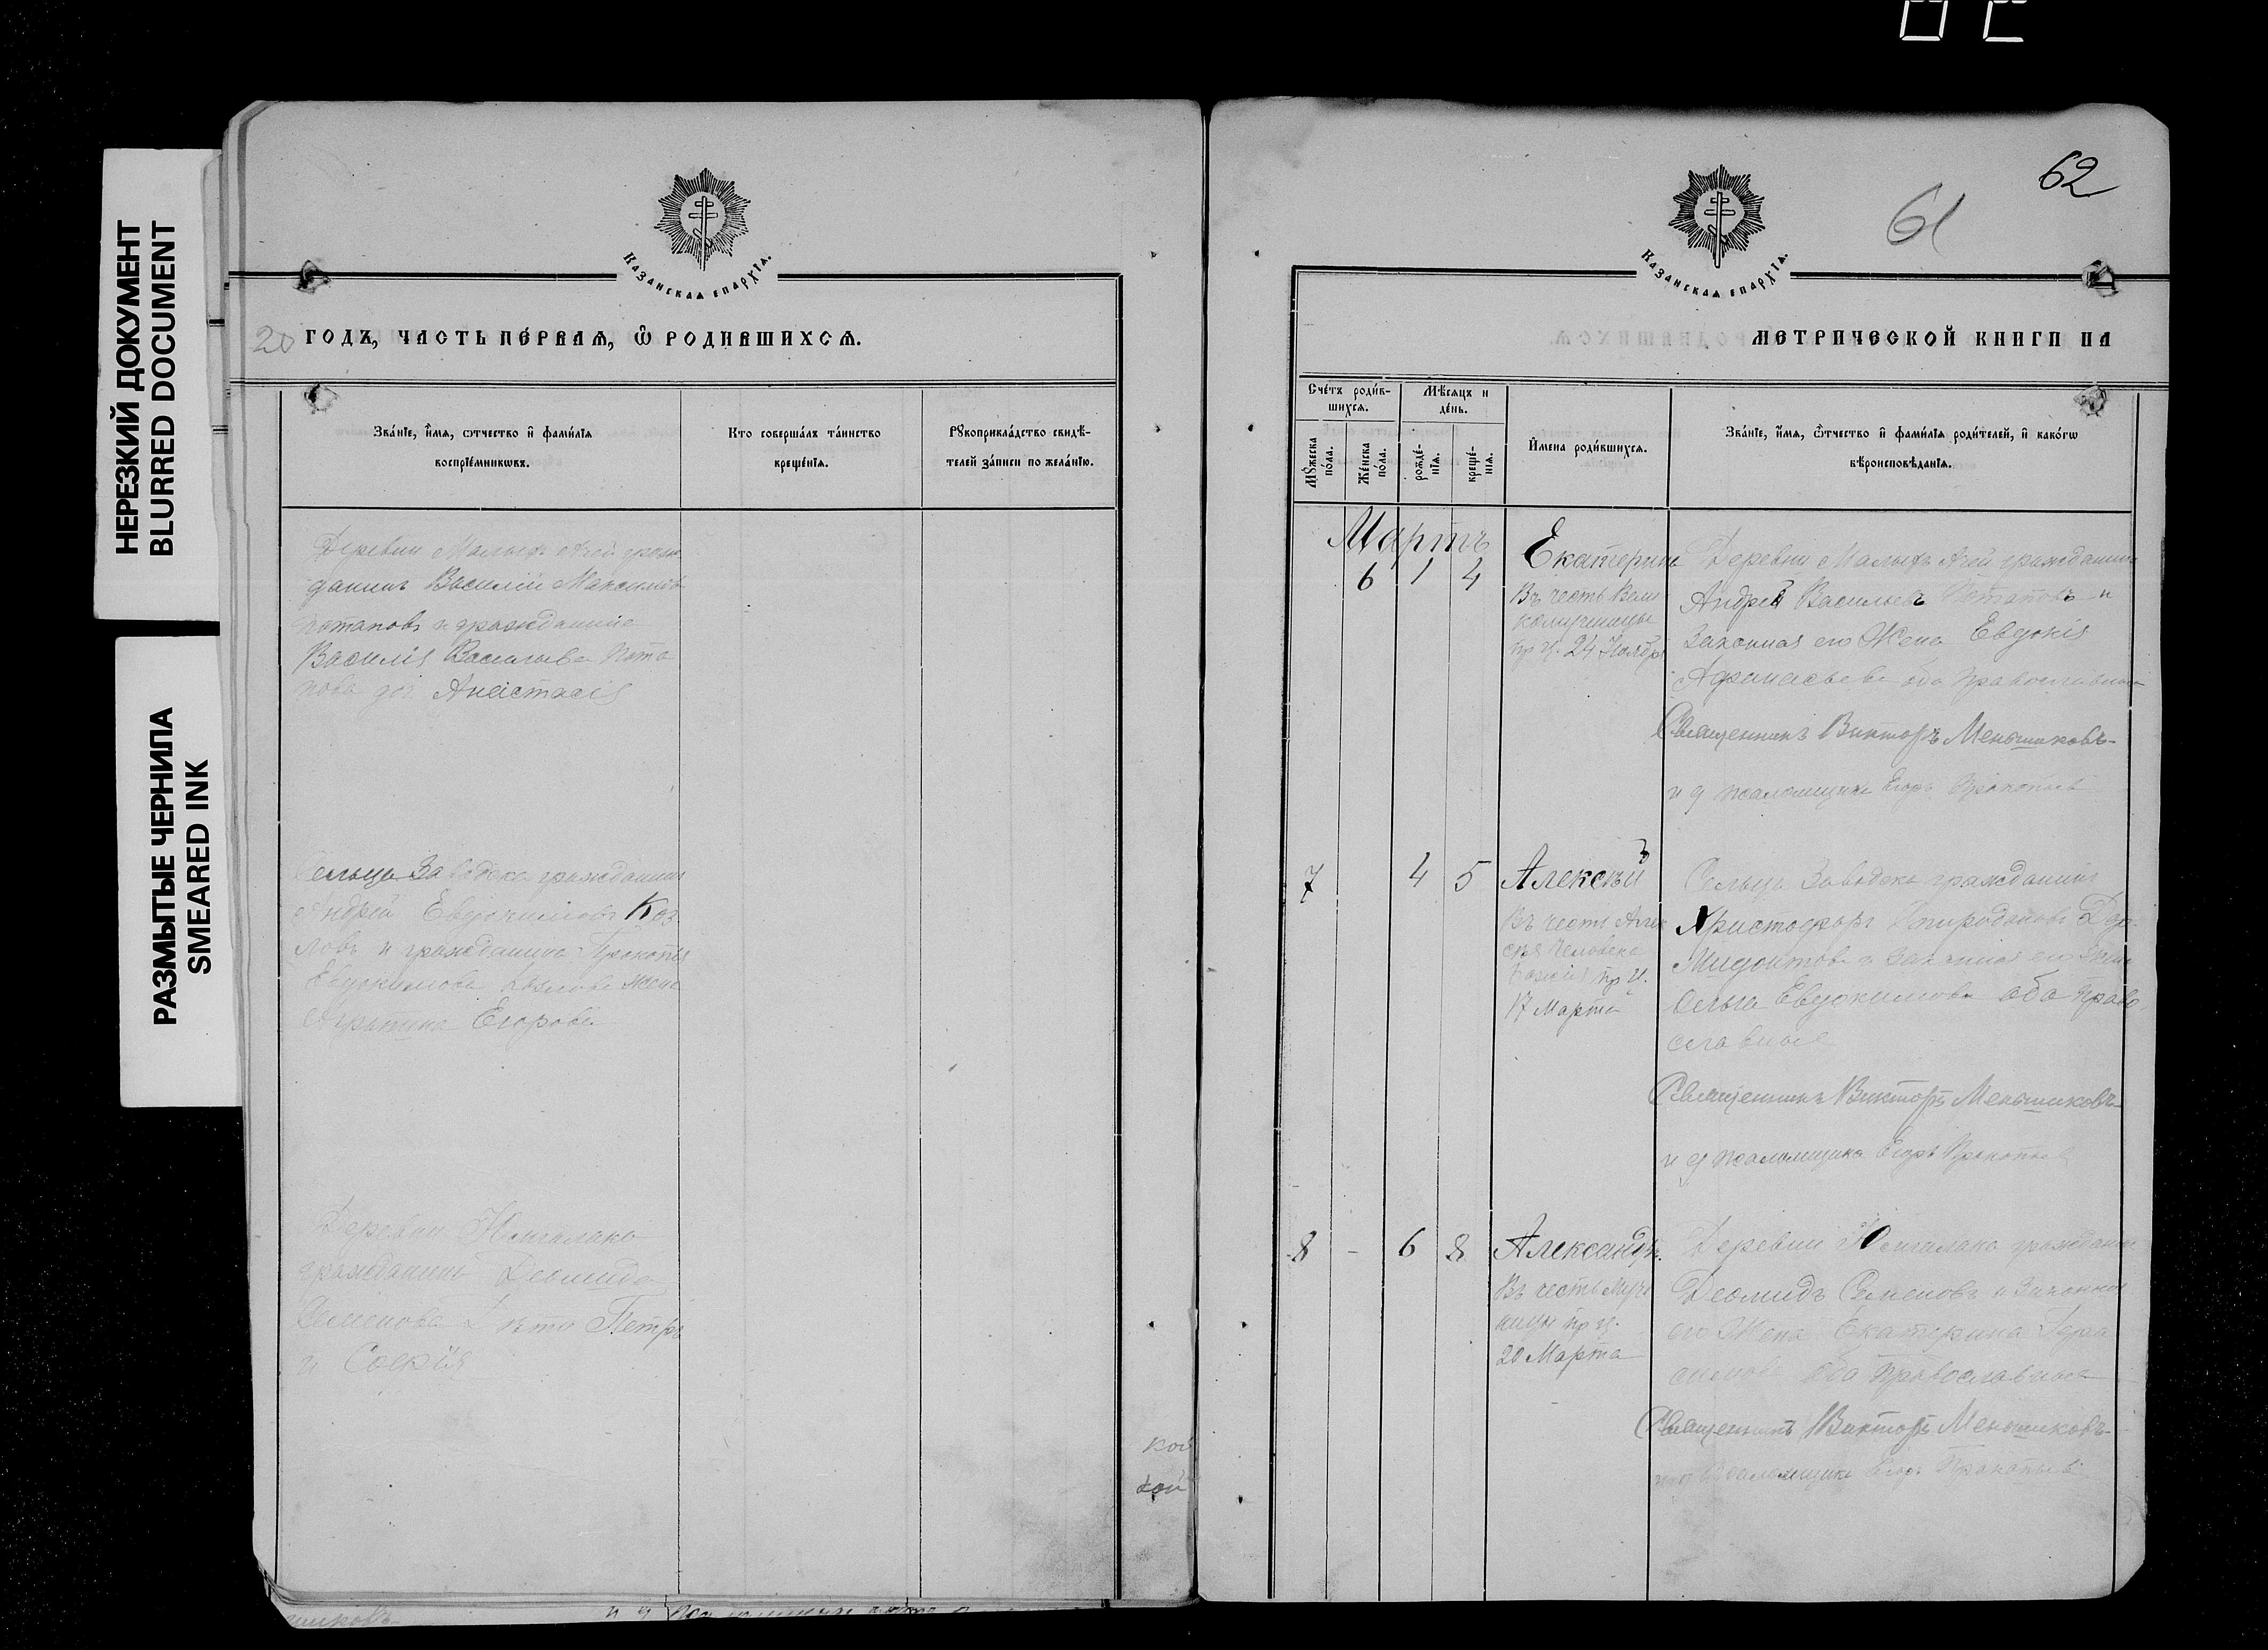 НЕРЕЗКИЙ ДОКУМЕНТ
BLURRED DOCUMENT
РАЗМЫТЫЕ ЧЕРНИЛА
SMEARED INK
Казанская епархїя.
20 годъ, часть первая, ѿ родившихся.
Званїе, имя, отчество и фамилїя
воспрїемниковъ.
Кто совершалъ таинство
крещенїя.
Рукоприкладство свидѣ-
телей записи по желанїю.
Деревни Малыхъ Ачей граж
данинъ Василій Максимовъ
Потаповъ и гражданина
Василія Васильева Пота
пова доч Анастасія
Сельца Заводска гражданинъ
Андрей Евдокимовъ Коз
ловъ и гражданина Прокопія
Евдокимова Козлова жена
Егорова
Деревни
гражданина Деомида
Семенова дѣти Петръ
и Софія
62
61
Казанская епархїя.
метрической книги на
Счетъ родив-
шихся.
Мѣсяцъ и
день.
Мужеска
пола.
Женска
пола.
рожде-
нїя.
креще-
нїя.
Имена родившихся.
Званїе, имя, отчество и фамилїя родителей, и какогѡ
вѣроисповѣданїя.
Мартъ
6 1 4
Екатерин
Въ честь Вели
комученицы
пр. ч. 24 Ноябр
Деревни Малыхъ Ачей гражданинъ
Андрей Васильевъ Потаповъ и
законная его Жена Евдокія
Афанасьева оба православные
Священникъ Викторъ Меньшиковъ
и д псаломщика Егоръ Прокопьев
7 4 5
Алексѣй
Въ честь Алек
сѣя Человека
Божія пр. ч.
17 Марта
Сельца Заводска гражданинъ
Христофоръ
и законная его жена
Ольга Евдокимова оба право
славные
Священникъ Викторъ Меньшиковъ
и д псаломщика Егоръ Прокопьев
8 - 6 8
Александръ.
Въ честь Муче
ницы пр. ч.
20 Марта
Деревни гражданинъ
Деомидъ Семеновъ и законная
его Жена Екатерина Гера
симова оба православные
Священникъ Викторъ Меньшиковъ
и д псаломщика Егоръ Прокопьев